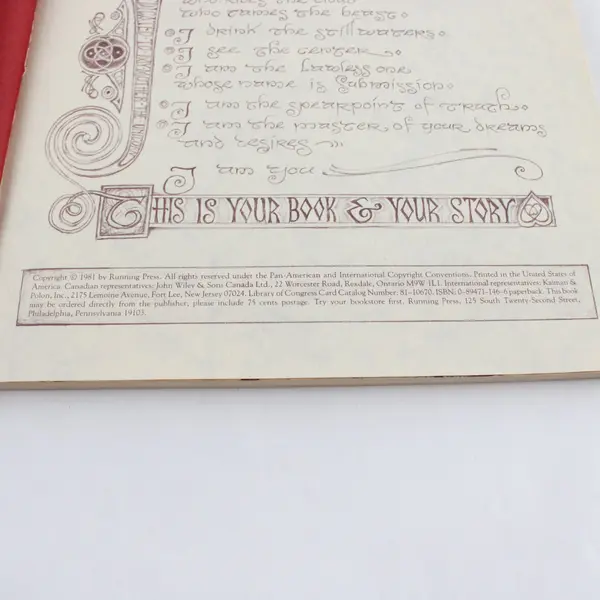 who rides the cloud
who tames the beast.
I drink the still waters.
I see the center.
I am the Lawless one
whose name is Submission.
I am the spearpoint of truth.
I am the master of your dreams
and desires
I am You
THIS IS YOUR BOOK & YOUR STORY
Copyright © 1981 by Running Press. All rights reserved under the Pan-American and International Copyright Conventions. Printed in the United States of
America. Canadian representatives: John Wiley & Sons Canada Ltd., 22 Worcester Road, Rexdale, Ontario M9W 1L1. International representatives: Kaiman &
Polon, Inc., 2175 Lemoine Avenue, Fort Lee, New Jersey 07024. Library of Congress Card Catalog Number: 81-10670. ISBN: 0-89471-146-6 paperback. This book
may be ordered directly from the publisher, please include 75 cents postage. Try your bookstore first. Running Press, 125 South Twenty-Second Street,
Philadelphia, Pennsylvania 19103.